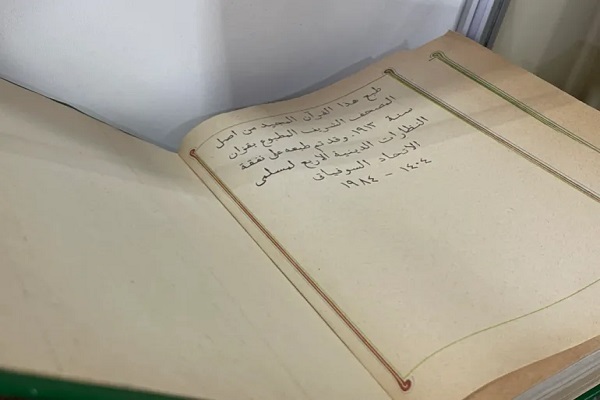 طبع هذا القرآن المجيد من اصل
المصحف الشريف المطبوع بقزان
سنة ١٩١٣. وقد تم طبعه على نفقة
النظارات الدينية الاربع لمسلمى
الاتحاد السوفياتى
١٤٠٤ - ١٩٨٤